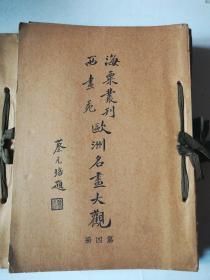 海粟叢刊
西畫苑
歐洲名畫大觀
蔡元培題
第四冊